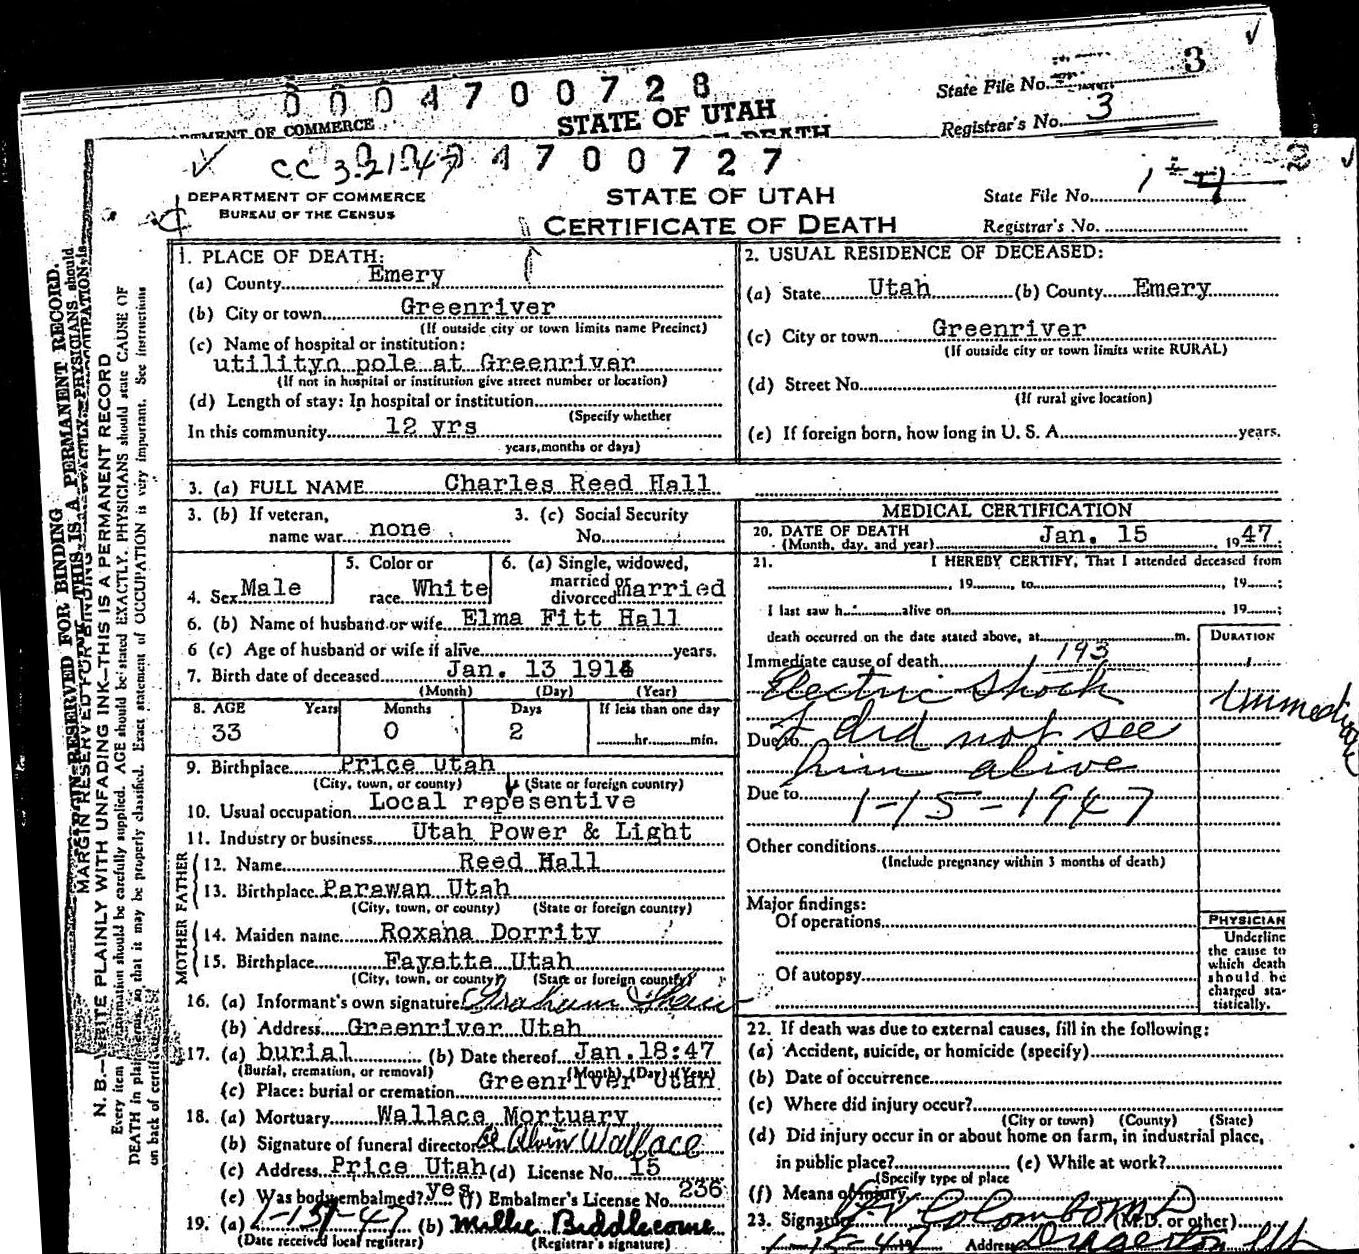 0 0 0 4 7 0 0 7 2 8
3
State File No.
DEPARTMENT OF COMMERCE
STATE OF UTAH
Registrar's No. 3
CC 3-21-47
4 7 0 0 7 2 7
2
DEPARTMENT OF COMMERCE
BUREAU OF THE CENSUS
STATE OF UTAH
CERTIFICATE OF DEATH
State File No.
Registrar's No.
MARGIN RESERVED FOR BINDING
N. B.—WRITE PLAINLY WITH UNFADING INK—THIS IS A PERMANENT RECORD
Every item of information should be carefully supplied. AGE should be stated EXACTLY. PHYSICIANS should state CAUSE OF
DEATH in plain terms, so that it may be properly classified. Exact statement of OCCUPATION is very important. See instructions
on back of certificate.
1. PLACE OF DEATH:
(a) County Emery
(b) City or town Greenriver
(If outside city or town limits name Precinct)
(c) Name of hospital or institution:
utilityn pole at Greenriver
(If not in hospital or institution give street number or location)
(d) Length of stay: In hospital or institution
(Specify whether
In this community 12 yrs
years, months or days)
2. USUAL RESIDENCE OF DECEASED:
(a) State Utah (b) County Emery
(c) City or town Greenriver
(If outside city or town limits write RURAL)
(d) Street No.
(If rural give location)
(e) If foreign born, how long in U. S. A. years.
3. (a) FULL NAME Charles Reed Hall
3. (b) If veteran,
name war none
3. (c) Social Security
No.
4. Sex Male
5. Color or
race White
6. (a) Single, widowed,
married or
divorced married
6. (b) Name of husband or wife Elma Fitt Hall
6 (c) Age of husband or wife if alive years.
7. Birth date of deceased Jan. 13 1914
(Month) (Day) (Year)
8. AGE Years Months Days If less than one day
33 0 2 hr. min.
9. Birthplace Price Utah
(City, town, or county) (State or foreign country)
10. Usual occupation Local repesentive
11. Industry or business Utah Power & Light
FATHER
12. Name Reed Hall
13. Birthplace Parawan Utah
(City, town, or county) (State or foreign country)
MOTHER
14. Maiden name Roxana Dorrity
15. Birthplace Fayette Utah
(City, town, or county) (State or foreign country)
16. (a) Informant's own signature Graham Shaw
(b) Address Greenriver Utah
17. (a) burial (b) Date thereof Jan.18:47
(Burial, cremation, or removal) (Month) (Day) (Year)
(c) Place: burial or cremation Greenriver Utah
18. (a) Mortuary Wallace Mortuary
(b) Signature of funeral director Alvin Wallace
(c) Address Price Utah (d) License No. 15
(e) Was body embalmed? yes (f) Embalmer's License No. 236
19. (a) (b) Millie Biddlecome
(Date received local registrar) (Registrar's signature)
MEDICAL CERTIFICATION
20. DATE OF DEATH
(Month, day, and year) Jan. 15, 1947;
21. I HEREBY CERTIFY, That I attended deceased from
, 19 , to , 19 ;
I last saw h alive on , 19 ;
death occurred on the date stated above, at m.
DURATION
Immediate cause of death 193
Electric Shock
Immediate
Due to I did not see
him alive
Due to 1-15-1947
Other conditions
(Include pregnancy within 3 months of death)
Major findings:
Of operations
Of autopsy
PHYSICIAN
Underline
the cause to
which death
should be
charged sta-
tistically.
22. If death was due to external causes, fill in the following:
(a) Accident, suicide, or homicide (specify)
(b) Date of occurrence
(c) Where did injury occur?
(City or town) (County) (State)
(d) Did injury occur in or about home on farm, in industrial place,
in public place? (e) While at work?
(Specify type of place
(f) Means of injury
23. Signature Colombo M D (M.D. or other)
1-15-47 19 Address Dragerton Ut